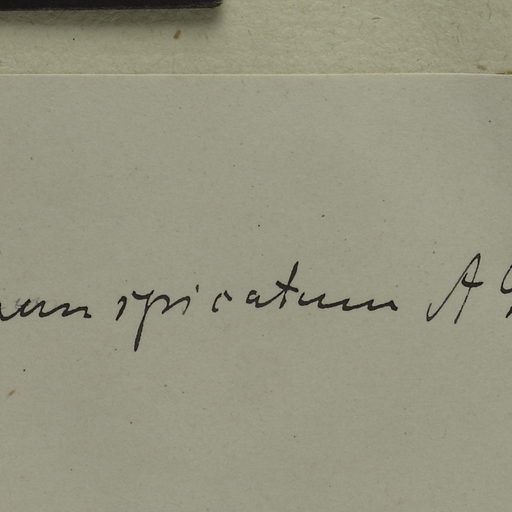 spicatum A